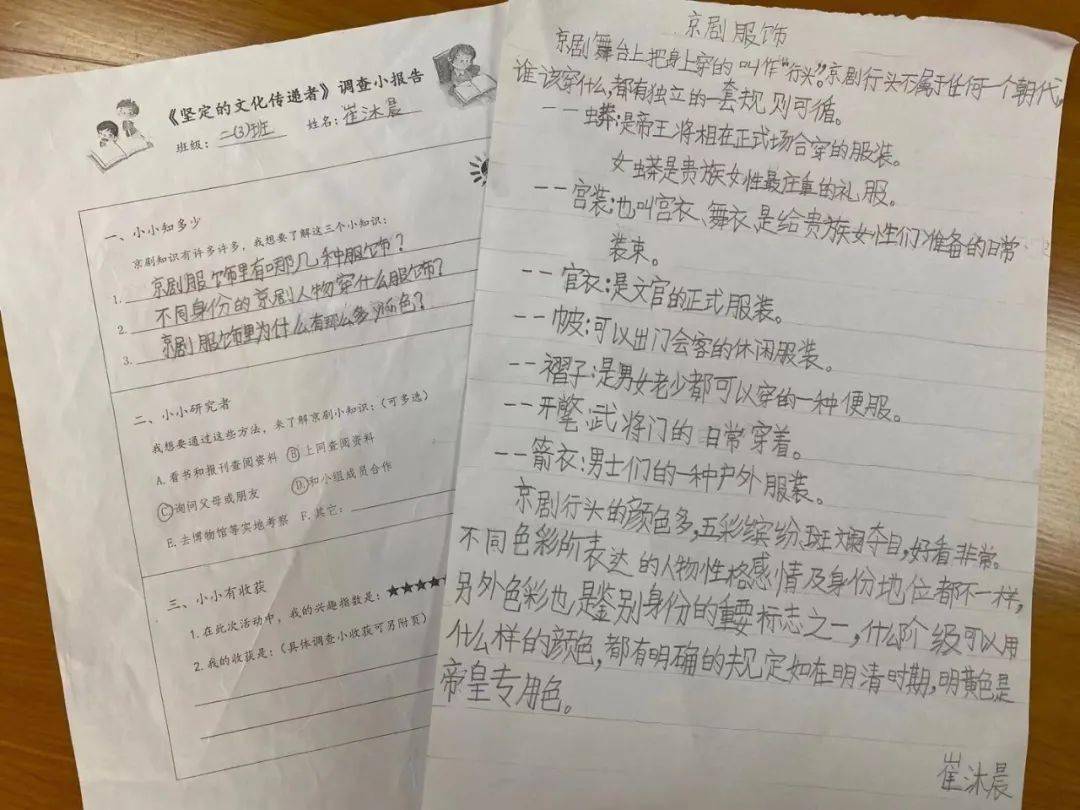 《坚定的文化传递者》调查小报告
班级：二(3)班 姓名：崔沐晨
一、小小知多少
京剧知识有许多许多，我想要了解这三个小知识：
1. 京剧服饰里有哪几种服饰？
2. 不同身份的京剧人物穿什么服饰？
3. 京剧服饰里为什么有那么多颜色？
二、小小研究者
我想要通过这些方法，来了解京剧小知识：（可多选）
A. 看书和报刊查阅资料 B 上网查阅资料
C 询问父母或朋友 D. 和小组成员合作
E. 去博物馆等实地考察 F. 其它：
三、小小有收获
1. 在此次活动中，我的兴趣指数是：★★★★★
2. 我的收获是：（具体调查小收获可另附页）
京剧服饰
京剧舞台上把身上穿的叫作“行头”。京剧行头不属于任何一个朝代,
谁该穿什么,都有独立的一套规则可循。
--蟒:是帝王将相在正式场合穿的服装。
女蟒是贵族女性最庄重的礼服。
--宫装:也叫宫衣、舞衣,是给贵族女性们准备的日常
装束。
--官衣:是文官的正式服装。
--帔:可以出门会客的休闲服装。
--褶子:是男女老少都可以穿的一种便服。
--开氅:武将门的日常穿着。
--箭衣:男士们的一种户外服装。
京剧行头的颜色多,五彩缤纷,斑斓夺目,好看非常。
不同色彩所表达的人物性格感情及身份地位都不一样,
另外色彩也是鉴别身份的重要标志之一,什么阶级可以用
什么样的颜色,都有明确的规定如在明清时期,明黄色是
帝皇专用色。
崔沐晨